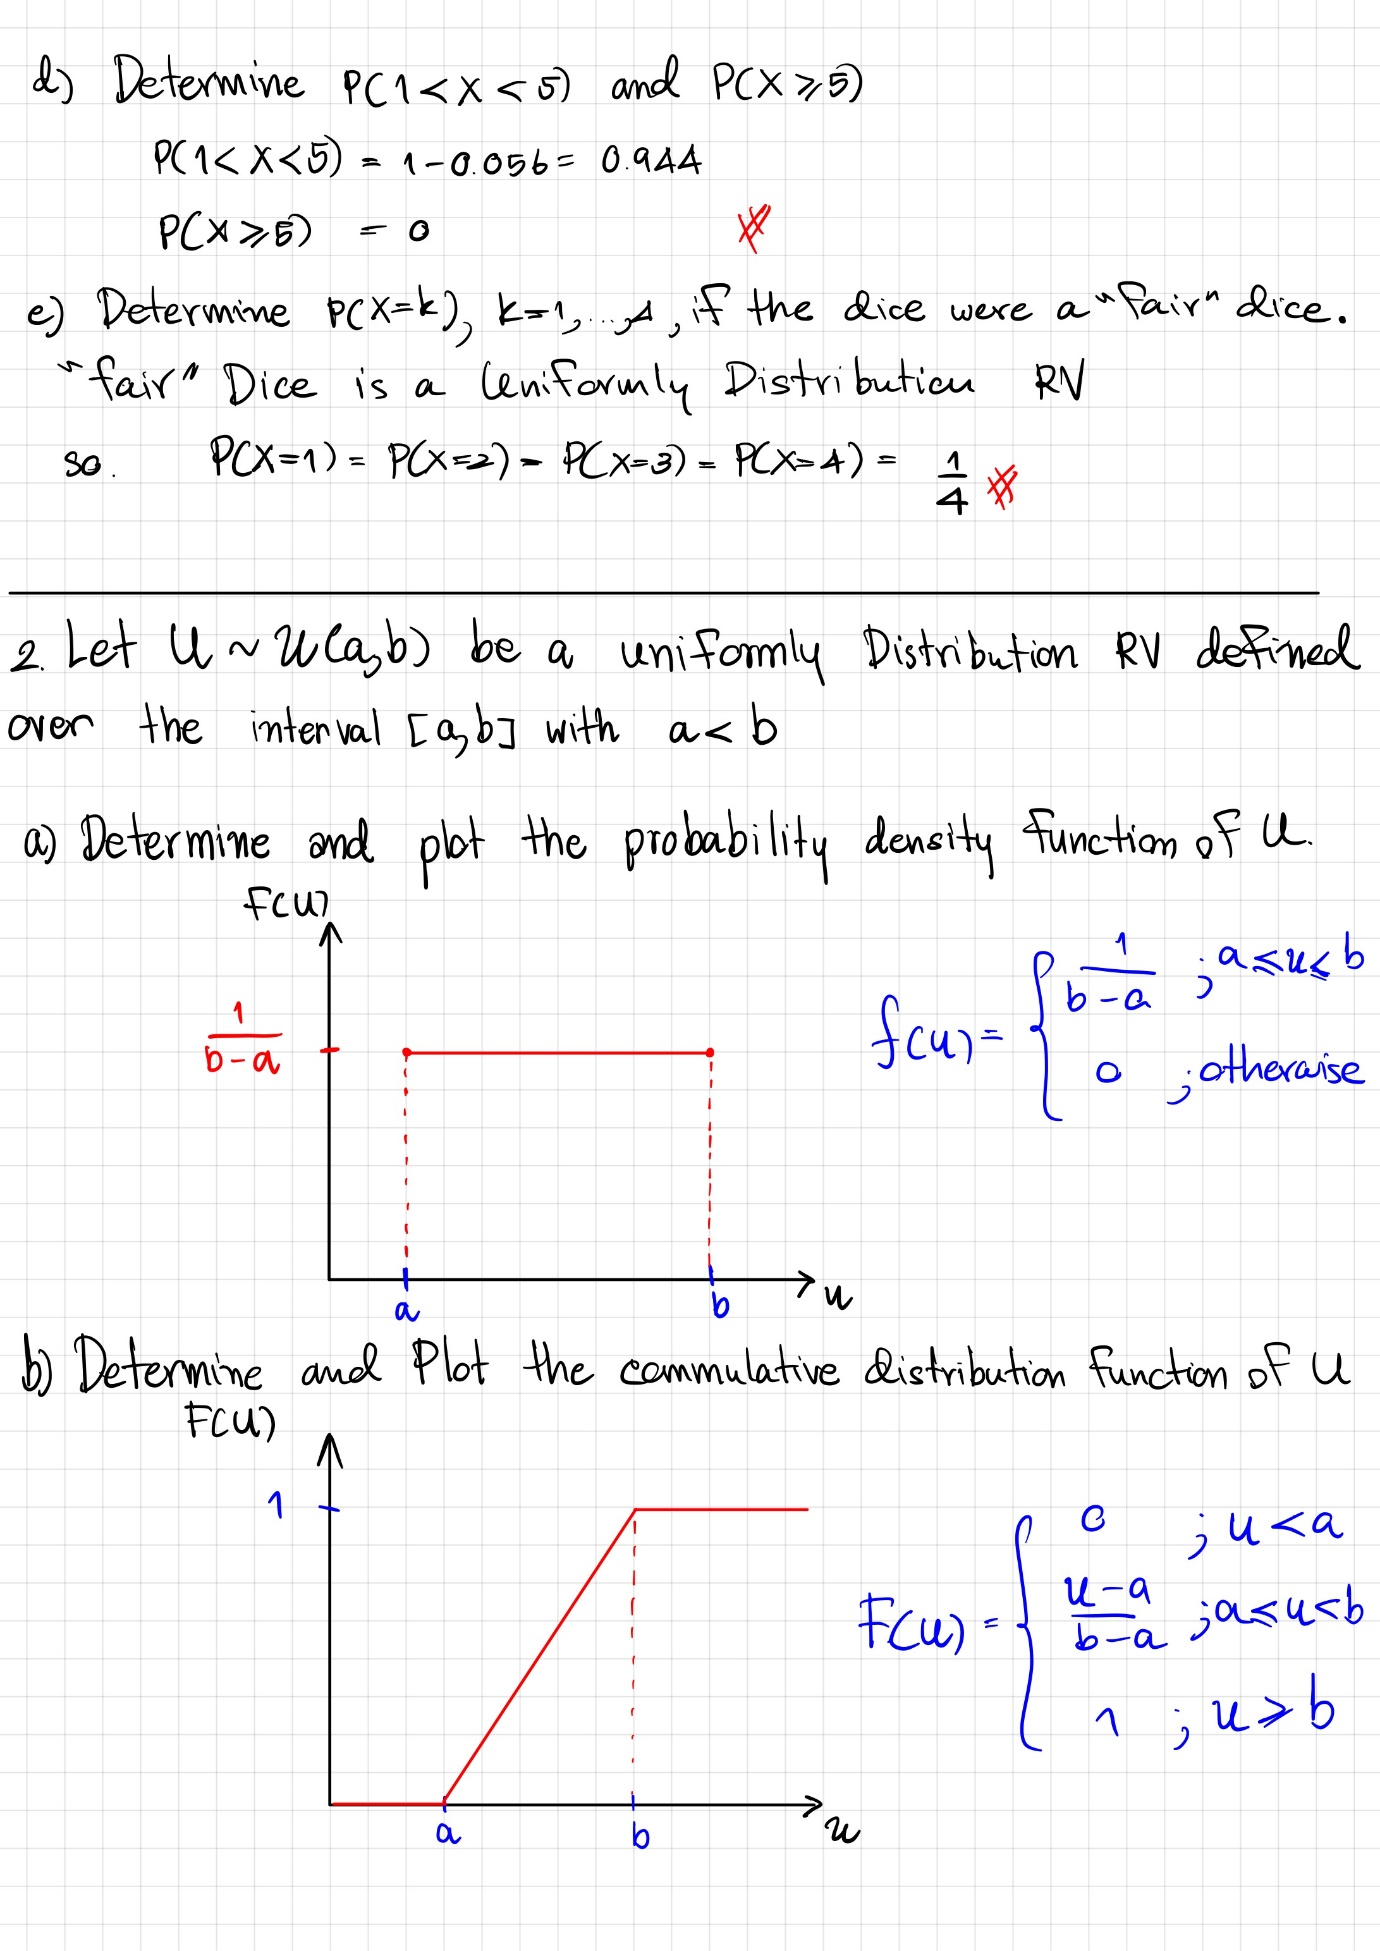 d) Determine P(1<X<5) and P(X⩾5)
P(1<X<5) = 1-0.056 = 0.944
P(X⩾5) = 0
e) Determine P(X=k), k=1,...,4, if the dice were a "fair" dice.
"fair" Dice is a Uniformly Distribution RV
so. P(X=1) = P(X=2) = P(X=3) = P(X=4) = 1/4
2. Let U ~ U(a,b) be a uniformly Distribution RV defined
over the interval [a,b] with a<b
a) Determine and plot the probability density function of U.
f(u)
1/(b-a)
f(u) = { 1/(b-a) ; a⩽u⩽b
0 ; otherwise
a b u
b) Determine and Plot the commulative distribution function of U
F(u)
1
F(u) = { 0 ; u<a
(u-a)/(b-a) ; a⩽u<b
1 ; u⩾b
a b u